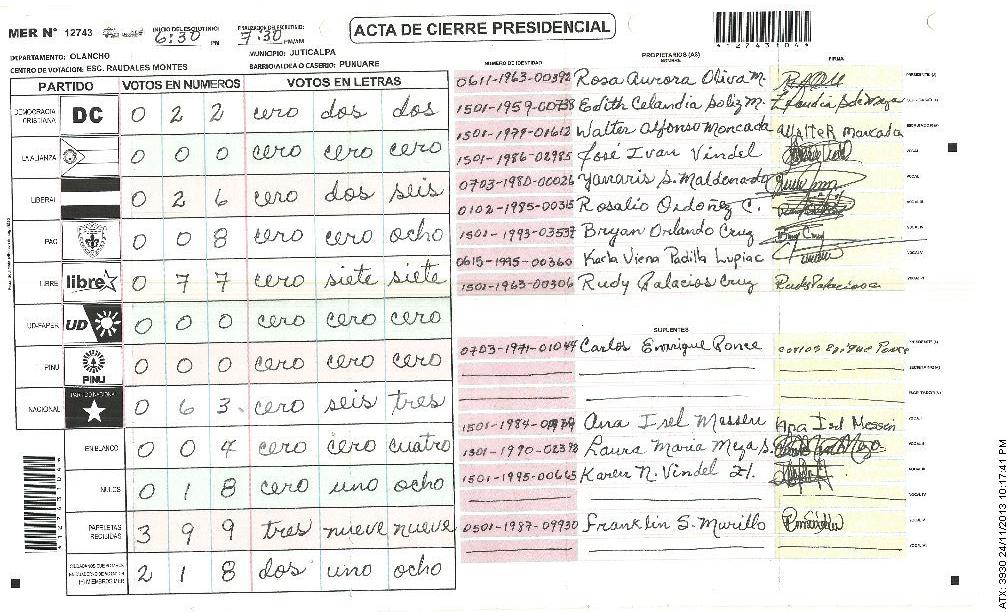 ACTA DE CIERRE PRESIDENCIAL
MER N° 12743
INICIO DEL ESCRUTINIO: 6:30 PM
FINALIZACION DE ESCRUTINIO: 7:30 PM/AM
4127431044
DEPARTAMENTO: OLANCHO
MUNICIPIO: JUTICALPA
CENTRO DE VOTACION: ESC. RAUDALES MONTES
BARRIO/ALDEA O CASERIO: PUNUARE
PARTIDO VOTOS EN NUMEROS VOTOS EN LETRAS
DEMOCRACIA CRISTIANA DC 0 2 2 cero dos dos
LA ALIANZA 0 0 0 cero cero cero
LIBERAL 0 2 6 cero dos seis
PAC 0 0 8 cero cero ocho
LIBRE libre 0 7 7 cero siete siete
UD-FAPER UD 0 0 0 cero cero cero
PINU PINU 0 0 0 cero cero cero
NACIONAL PARTIDO NACIONAL 0 6 3 cero seis tres
EN BLANCO 0 0 4 cero cero cuatro
NULOS 0 1 8 cero uno ocho
PAPELETAS RECIBIDAS 3 9 9 tres nueve nueve
2 1 8 dos uno ocho
PROPIETARIOS (AS)
NUMERO DE IDENTIDAD NOMBRE FIRMA
0611-1963-00392 Rosa Aurora Oliva M. PRESIDENTE (A)
1501-1959-00738 Edith Celandia Soliz M.
1501-1979-01612 Walter Alfonso Moncada Walter Moncada
1501-1986-02985 José Ivan Vindel
0703-1980-00026 Yanaris S. Maldonado
0102-1985-00315 Rosalio Ordoñez C.
1501-1993-03537 Bryan Orlando Cruz
0615-1995-00360 Karla Viena Padilla Lupiac
1501-1963-00306 Rudy Palacios Cruz Rudy Palacios c
SUPLENTES
0703-1971-01044 Carlos Enrrique Ponce
Ana Isel Messen Ana Isel Messen
1501-1990-02398 Laura Maria Meza S.
1501-1995-00665 Karen N. Vindel
0501-1987-09930 Franklin S. Murillo
4127431044
ATX: 3930 24/11/2013 10:17:41 PM